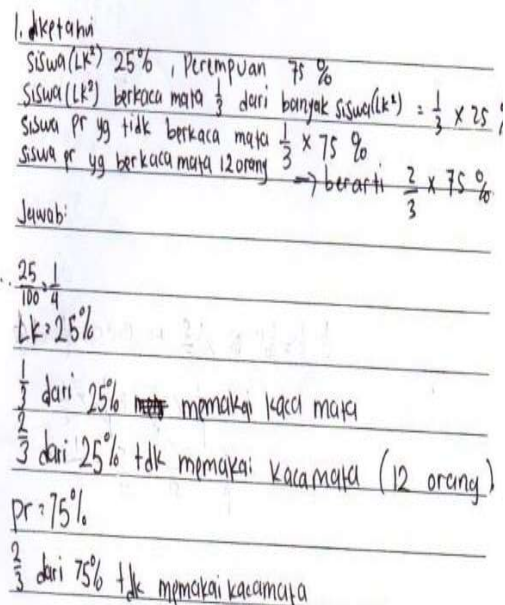 1. diketahui
Siswa (LK²) 25% , Perempuan 75 %
Siswa (LK²) berkaca mata 1/3 dari banyak siswa (LK²) = 1/3 × 25
Siswa pr yg tidk berkaca mata 1/3 × 75 %
Siswa pr yg berkaca mata 12 orang → berarti 2/3 × 75 %
Jawab:
25/100 = 1/4
LK = 25%
1/3 dari 25% memakai kaca mata
2/3 dari 25% tdk memakai kacamata (12 orang)
pr = 75%
2/3 dari 75% tdk memakai kacamata